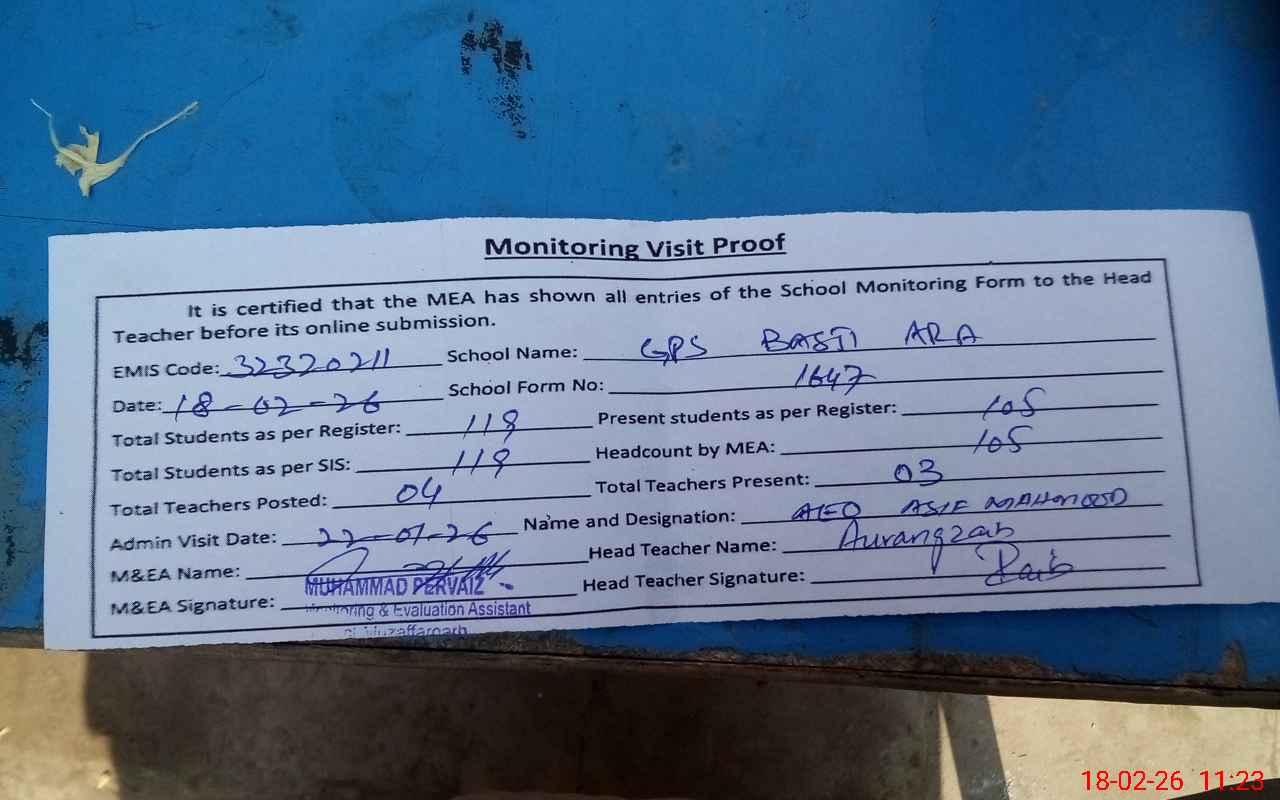 Monitoring Visit Proof
It is certified that the MEA has shown all entries of the School Monitoring Form to the Head
Teacher before its online submission.
EMIS Code: 32320211 School Name: GPS BASTI ARA
Date: 18-02-26 School Form No: 1647
Total Students as per Register: 119 Present students as per Register: 105
Total Students as per SIS: 119 Headcount by MEA: 105
Total Teachers Posted: 04 Total Teachers Present: 03
Admin Visit Date: 22-01-26 Name and Designation: AEO ASIF MAHMOOD
M&EA Name: Head Teacher Name: Aurangzaib
MUHAMMAD PERVAIZ
M&EA Signature: Head Teacher Signature: Zaib
Monitoring & Evaluation Assistant
Muzaffargarh
18-02-26 11:23